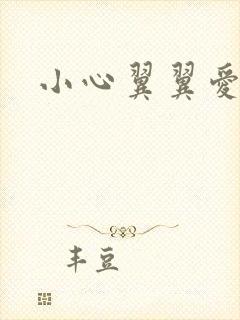 小心翼翼愛
丰豆